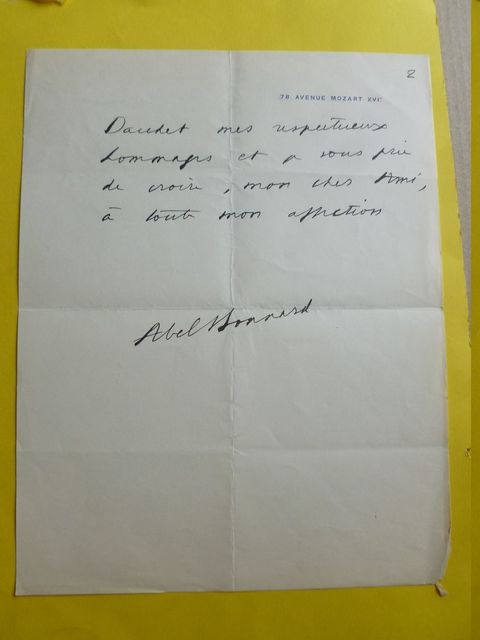 2
78. AVENUE MOZART. XVIᵉ
Daudet mes respectueux
hommages et je vous prie
de croire, mon cher Ami,
à toute mon affection
Abel Bonnard